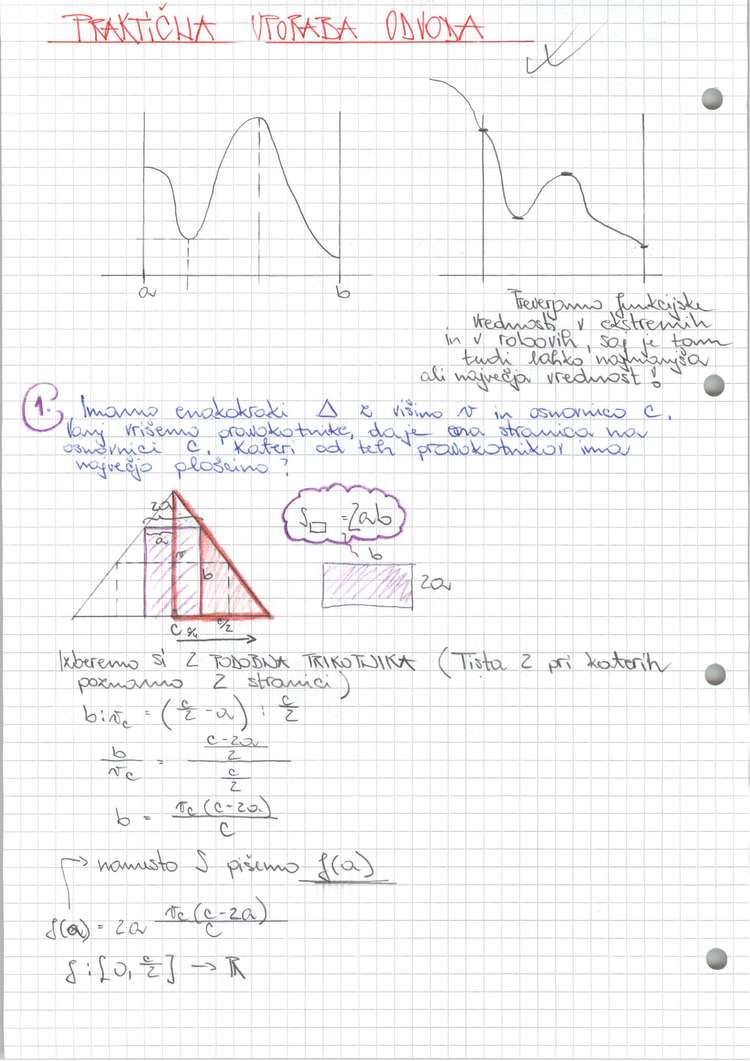 PRAKTIČNA UPORABA ODVODA
a
b
Preverjamo funkcijske
vrednosti v ekstremih
in v robovih, saj je tam
tudi lahko najmanjša
ali največja vrednost!
1. Imamo enakokraki Δ z višino v in osnovnico c.
Vanj vrišemo pravokotnike, da je ena stranica na
osnovnici c. Kateri od teh pravokotnikov ima
največjo ploščino?
2a
a
v
b
c
c/2
S□ = 2ab
b
2a
Izberemo si 2 PODOBNA TRIKOTNIKA (Tista 2 pri katerih
poznamo 2 stranici)
b:v_c = (c/2 - a) : c/2
b/v_c = ((c-2a)/2)/(c/2)
b = v_c(c-2a)/c
→ namesto S pišemo f(a)
f(a) = 2a v_c(c-2a)/c
f:[0, c/2] → R